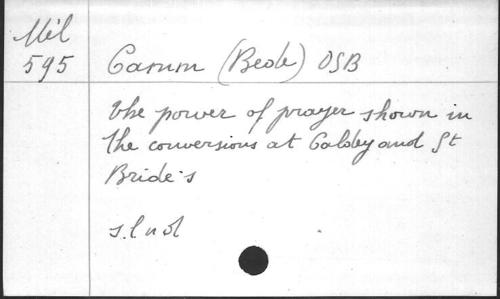 Mél
595
Camm (Bede) OSB
The power of prayer shown in
the conversions at Caldey and St
Bride's
s.l n d